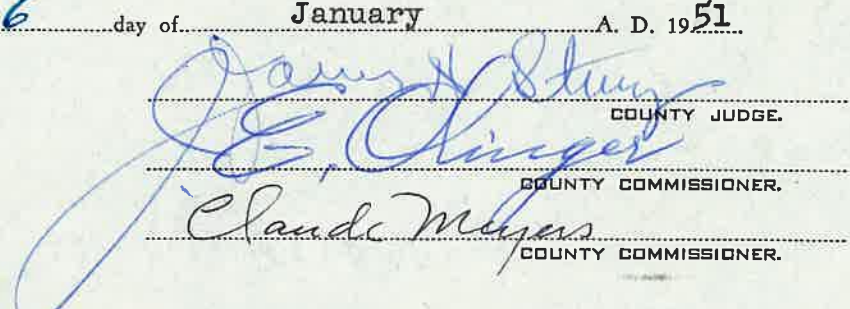 6 day of January A. D. 1951
James H Sturg
COUNTY JUDGE.
J. E. Olinger
COUNTY COMMISSIONER.
Claude Meyers
COUNTY COMMISSIONER.